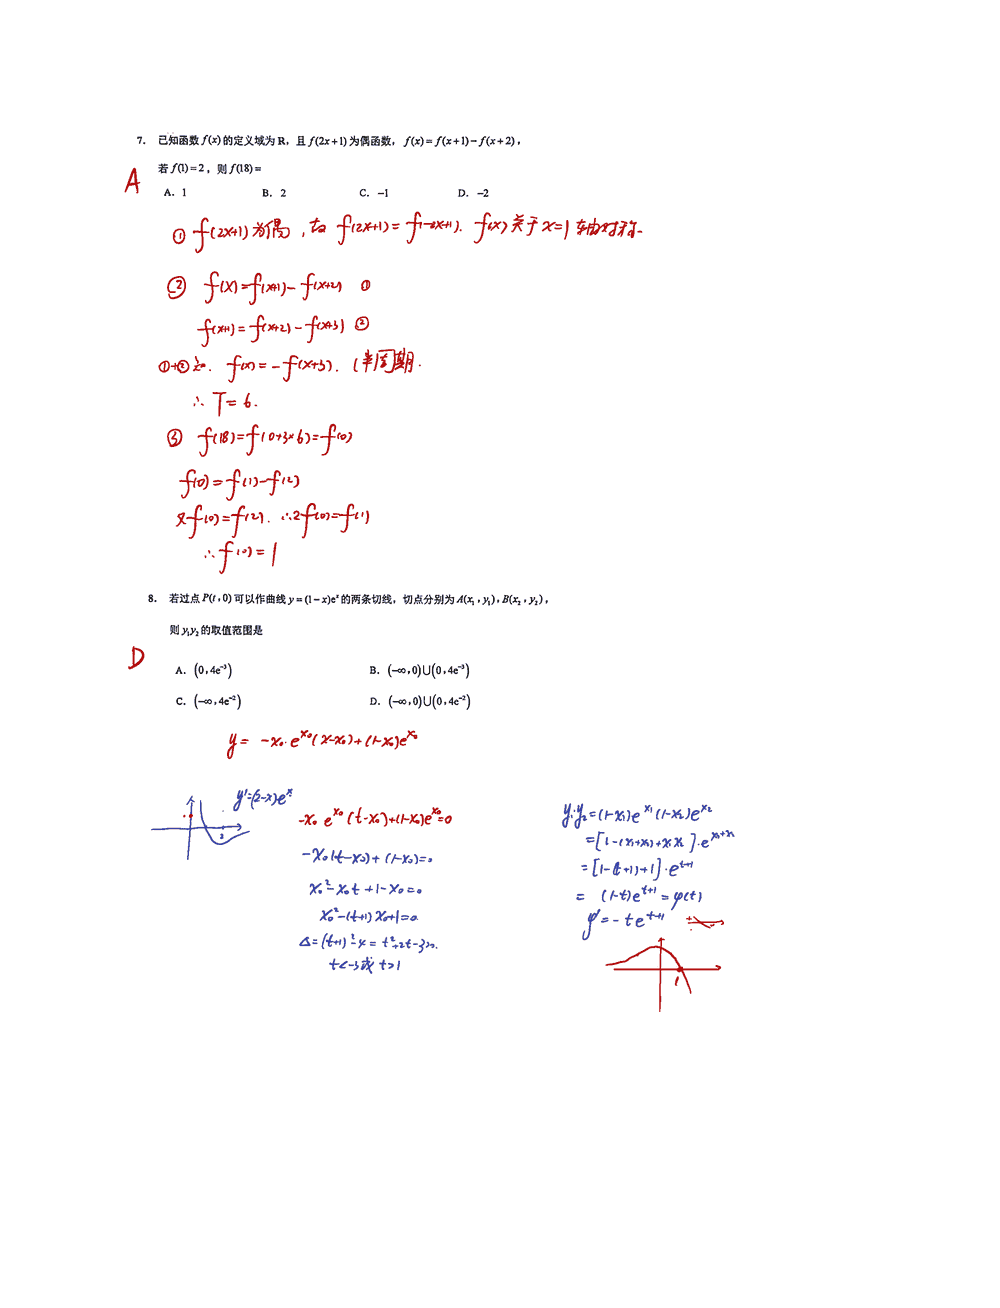 7. 已知函数 f(x) 的定义域为 R，且 f(2x+1) 为偶函数，f(x)=f(x+1)−f(x+2)，
若 f(1)=2，则 f(18)=
A
A. 1 B. 2 C. −1 D. −2
① f(2x+1) 为偶，故 f(2x+1)=f(-2x+1). f(x) 关于 x=1 轴对称.
② f(x)=f(x+1)-f(x+2) ①
f(x+1)=f(x+2)-f(x+3) ②
①+②知. f(x)=-f(x+3). (半周期.
∴ T=6.
③ f(18)=f(0+3×6)=f(0)
f(0)=f(1)-f(2)
又f(0)=f(2). ∴2f(0)=f(1)
∴f(0)=1
8. 若过点 P(t,0) 可以作曲线 y=(1−x)eˣ 的两条切线，切点分别为 A(x₁,y₁)，B(x₂,y₂)，
则 y₁y₂ 的取值范围是
D
A. (0,4e⁻³) B. (−∞,0)∪(0,4e⁻³)
C. (−∞,4e⁻²) D. (−∞,0)∪(0,4e⁻²)
y= -x₀·e^x₀(x-x₀)+(1-x₀)e^x₀
y'=(2-x)e^x
2
-x₀ e^x₀(t-x₀)+(1-x₀)e^x₀=0
-x₀(t-x₀)+(1-x₀)=0
x₀²-x₀t+1-x₀=0
x₀²-(t+1)x₀+1=0
Δ=(t+1)²-4=t²+2t-3>0.
t<-3或 t>1
y₁·y₂=(1-x₁)e^x₁(1-x₂)e^x₂
=[1-(x₁+x₂)+x₁x₂]·e^(x₁+x₂)
=[1-(t+1)+1]·e^(t+1)
= (1-t)e^(t+1)=φ(t)
φ'=-te^(t+1)
1